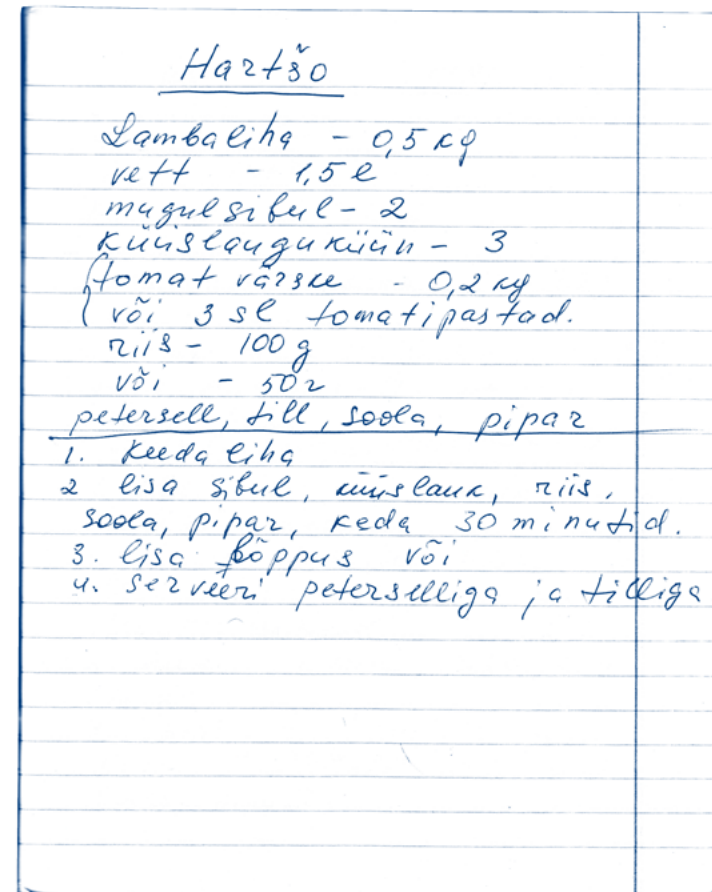 Hartšo
Lambaliha - 0,5 kg
vett - 1,5 l
mugulsibul - 2
küüslauguküün - 3
tomat värske - 0,2 kg
või 3 sl tomatipastad.
riis - 100 g
või - 50 г
petersell, till, soola, pipar
1. Keeda liha
2 lisa sibul, küüslauk, riis,
soola, pipar, keda 30 minutid.
3. lisa põppus või
4. serveeri peterselliga ja tilliga